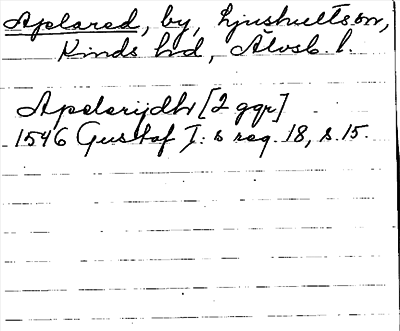 Aplared, by, Ljushults sn,
Kinds hd, Älvsb. l.
Apelerijdh [2 ggr]
1546 Gustaf I:s reg. 18, s. 15.